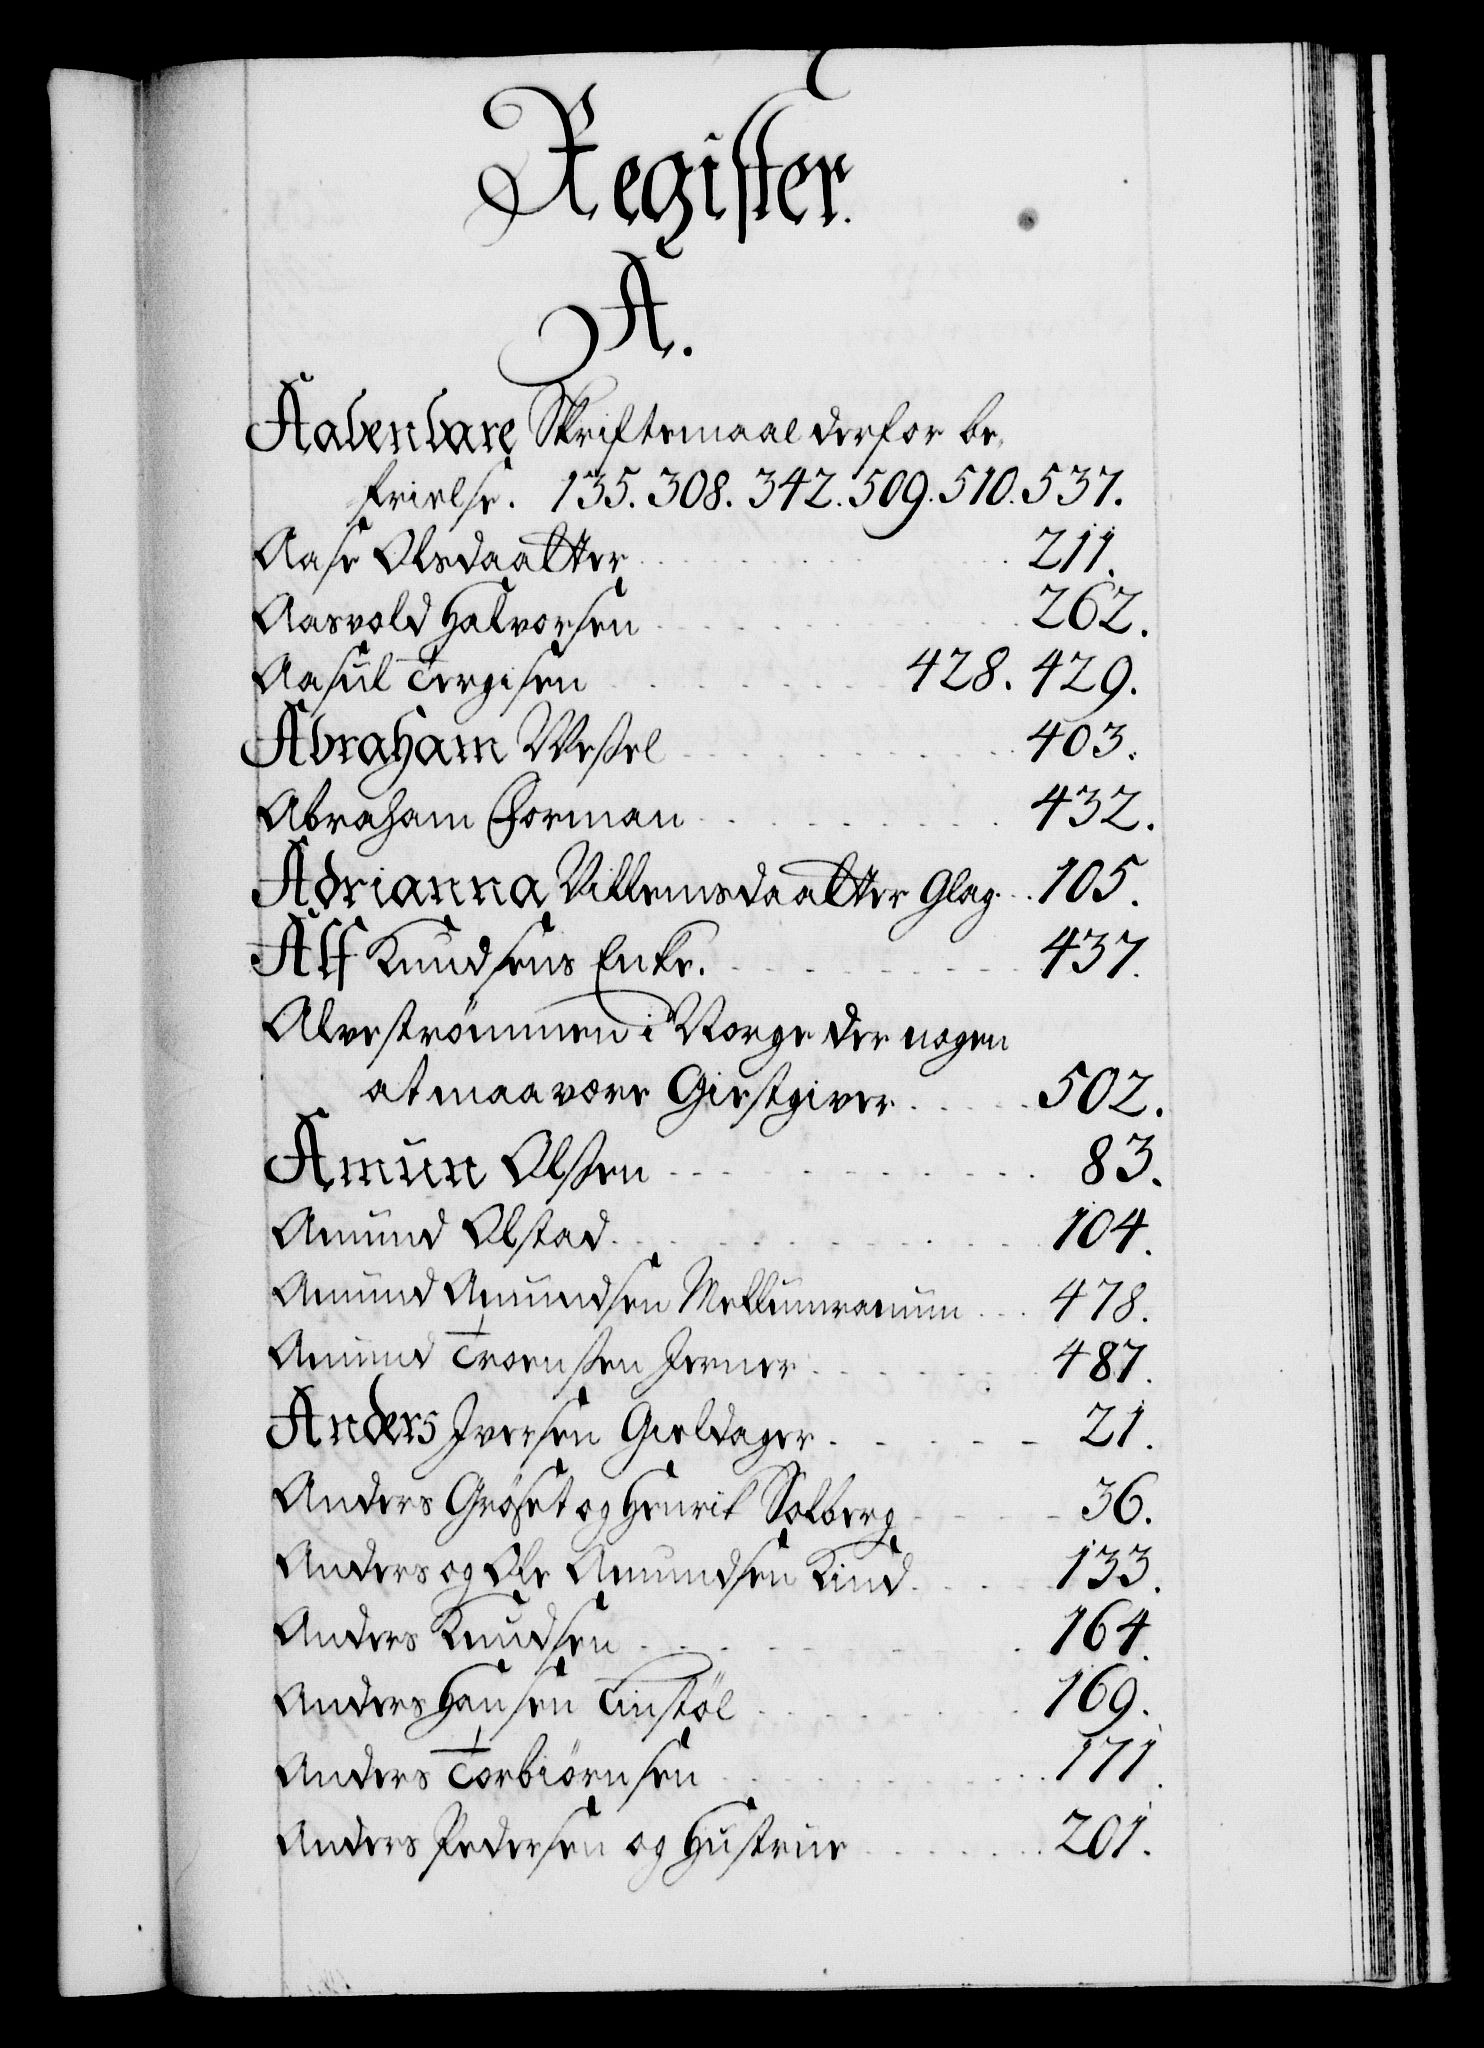 Register.
A.
Aabenbare Skriftemaal derfor be,
frielse. 135. 308. 342. 509. 510. 537.
Aase Olsdaatter 211.
Aasvold Halvorsen 262.
Aasul Tergisen 428. 429.
Abraham Weßel 403.
Abraham Thorman 432.
Adrianna Villemsdaatter Glag 105.
Alf Knudsens Enke. 437.
Alveströmmen i Norge der nogen
at maa være Giestgiver 502.
Amun Olßen 83.
Amund Olstad 104.
Amund Amundsen 478.
Amund Troenßen Jerner 487.
Anders Iversen Gieldager 21.
Anders Gröset og Henrik Solberg 36.
Anders og Ole Amundsen Lind 133.
Anders Knudsen 164.
Anders Hansen Tinstöl 169.
Anders Torbiörnsen 171.
Anders Pedersen og Hustrue 201.